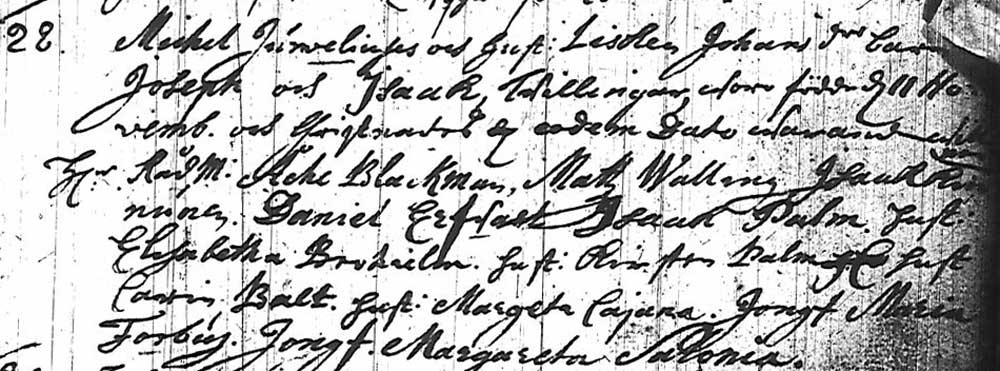 28. Michel Jürveliuses och hust: Lisken Johans d^r barn
Joseph och Isaak, Twillingar, woro födde d 11 No-
vemb. och Christnades d eodem Dato
H^r Rådm: Åche Blackman, Matz Walling Isaak
Daniel Erfvast Isaak Palm. hust.
Elisabetha hust: Kirsten Palm hust
Carin Balt. hust: Margeta Cajana. Jongf Maria
Forbus. Jongf. Margareta Salonia.